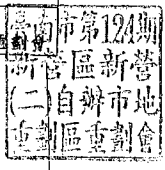 臺南市第124期
新營區新營
(二)自辦市地
重劃區重劃會